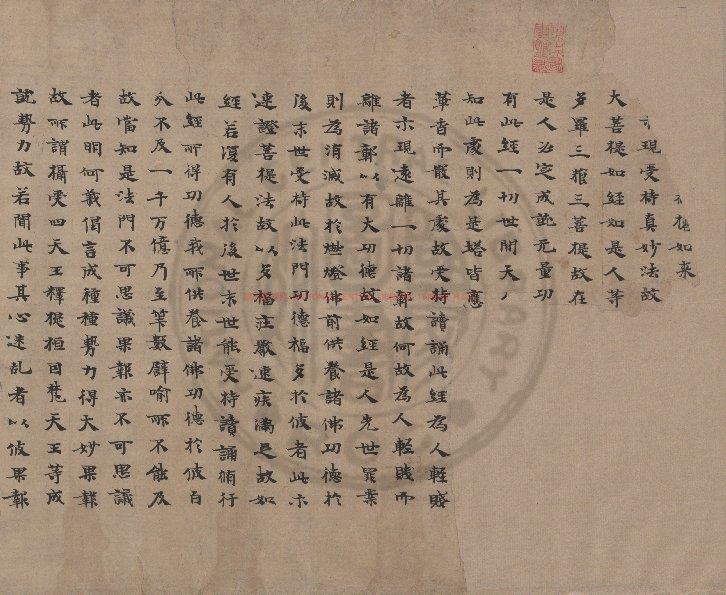 極如来
現受持真妙法故
大菩提如經如是人等
多羅三藐三菩提故在
是人必定成就无量功
有此經一切世間天
知此處則為是塔皆應
華香而散其處故受持讀誦此經為人輕賤
者示現遠離一切諸鄣故何故為人輕賤而
離諸鄣以有大功德故如經是人先世罪業
則為消滅故於燃燈佛前供養諸佛功德於
後末世受持此法門功德福多於彼者此示
速證菩提法故以多福莊嚴速疾滿足故如
經若復有人於後世末世能受持讀誦脩行
此經所得功德我所供養諸佛功德於彼百
分不及一千万億乃至筭數譬喻所不能及
故當知是法門不可思議果報亦不可思議
者此明何義偈言成種種勢力得大妙果報
故所謂攝受四天王釋提桓因梵天王等成
就勢力故若聞此事其心迷乱者以彼果報